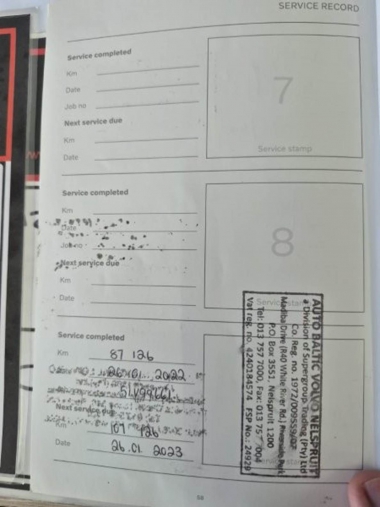 SERVICE RECORD
Service completed
Km
Date
Job no
Next service due
Km
Date
7
Service stamp
Service completed
Km
Date
Job no
Next service due
Km
Date
8
Service completed
Km 87 126
26.01.2022
Next service due
Km 107 126
Date 26.01 2023
AUTO BALTIC VOLVO NELSPRUIT
a Division of Supergroup Trading (Pty) Ltd
Co. Reg. no. 1972/009559/07
P.O. Box 3551, Nelspruit 1200
Tel: 013 757 7000, Fax: 013 75 004
Vat reg. no. 4240184574 FSP No.: 24920